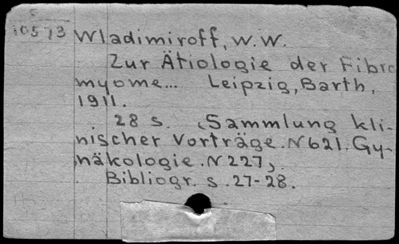 10573
Wladimiroff, W.W.
Zur Ätiologie der Fibro
myome... Leipzig, Barth,
1911.
28 s. (Sammlung kli-
nischer Vorträge. N621. Gy-
näkologie. N227)
Bibliogr. s. 27-28.